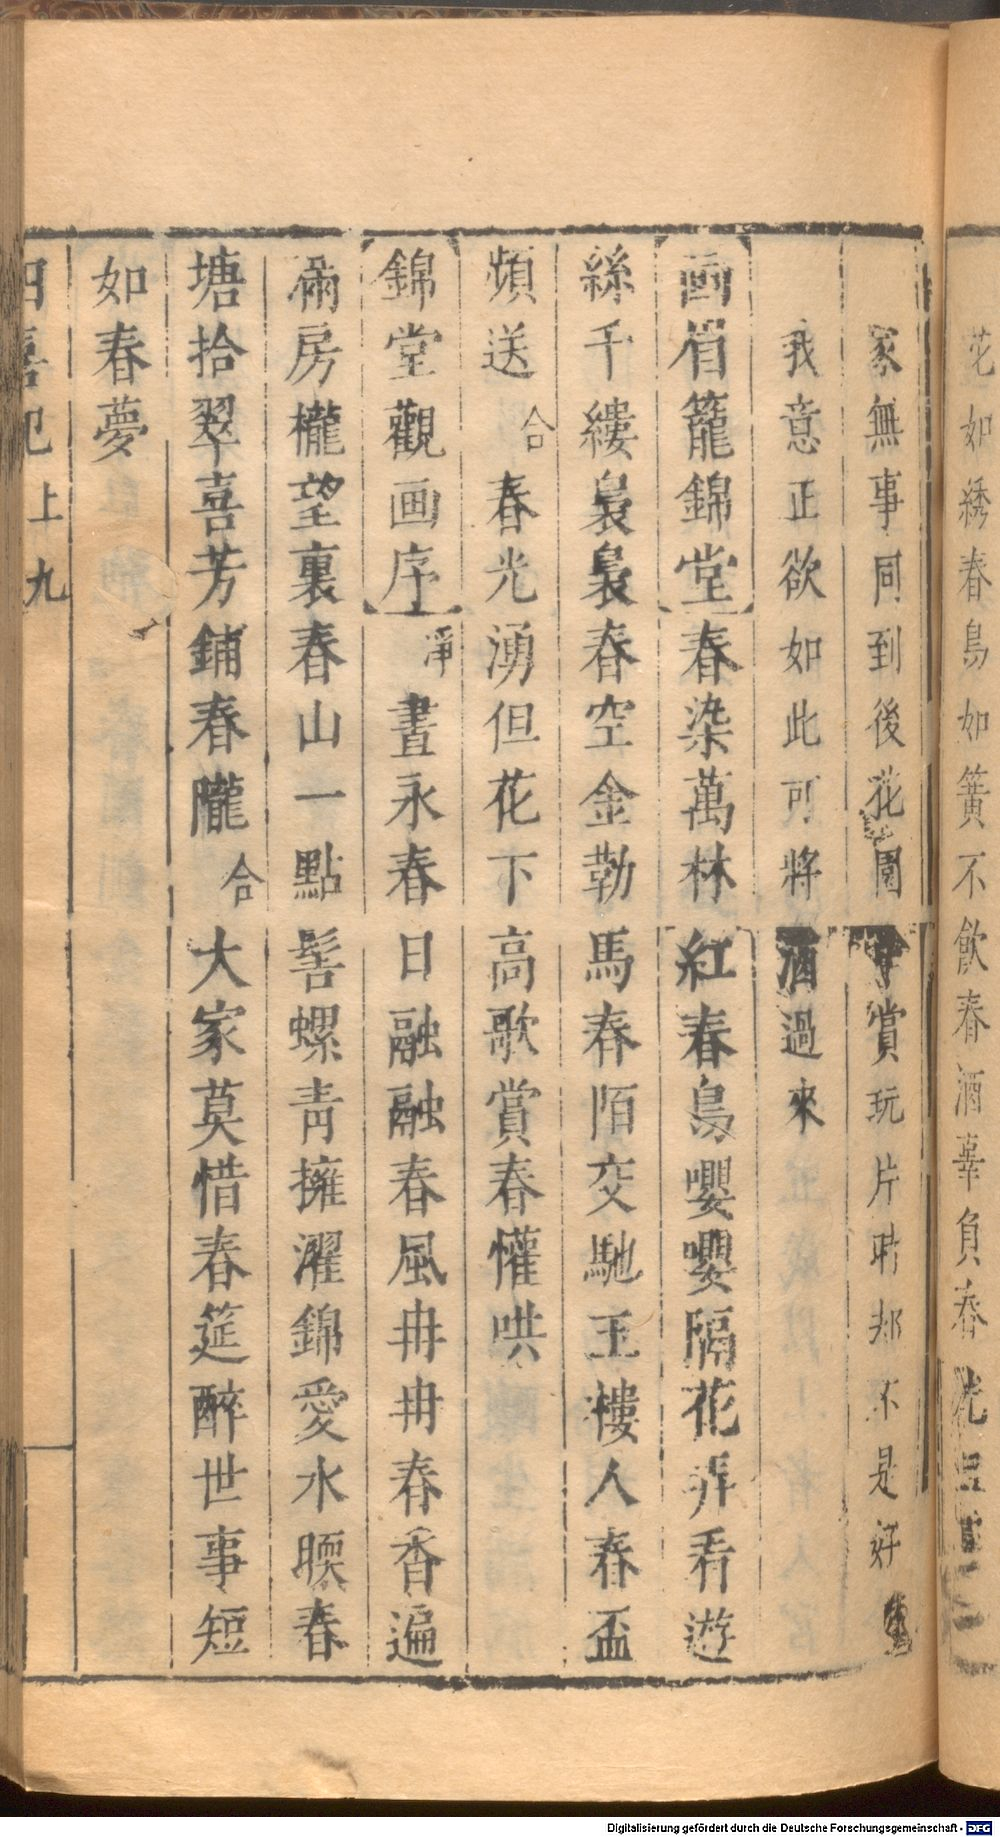 花如綉春鳥如簧不飲春酒辜負春
家無事同到後花園賞玩片時却不是好
我意正欲如此可將酒過來
画眉籠錦堂春染萬林紅春鳥嚶嚶隔花弄看遊
絲千縷裊裊春空金勒馬春陌交馳玉樓人春盃
頻送合春光湧但花下高歌賞春懽哄
錦堂觀画序淨晝永春日融融春風冉冉春香遍
滿房櫳望裏春山一點髻螺青擁濯錦愛水暖春
塘拾翠喜芳鋪春隴合大家莫惜春筵醉世事短
如春夢
四喜記上九
Digitalisierung gefördert durch die Deutsche Forschungsgemeinschaft - DFG